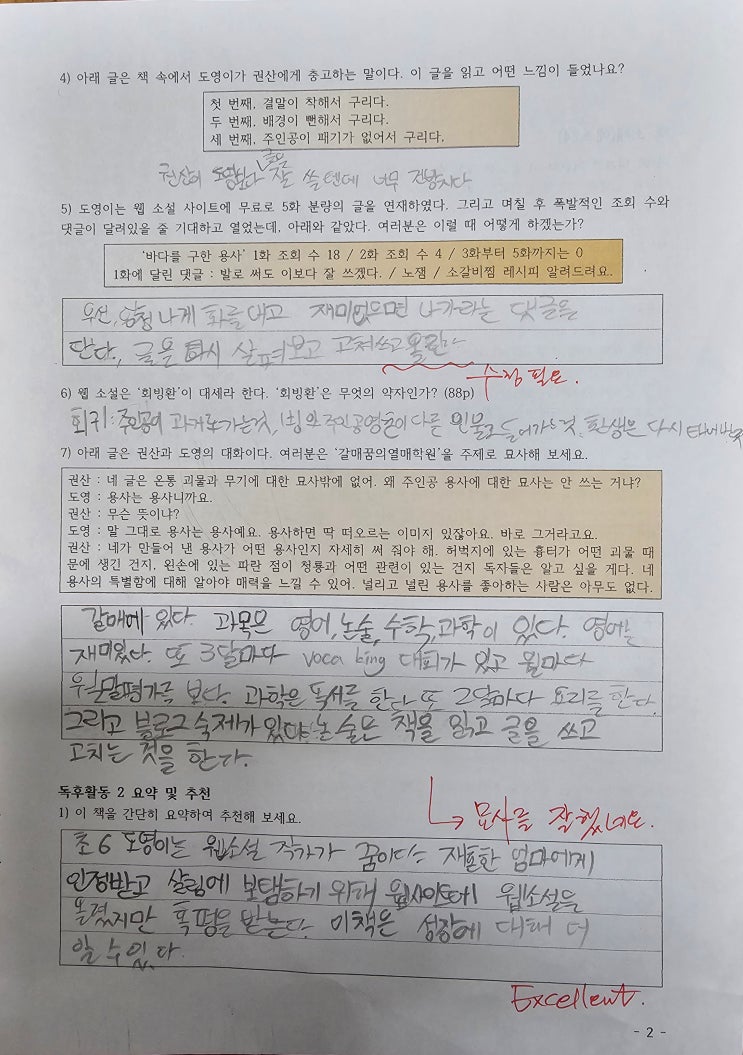 4) 아래 글은 책 속에서 도영이가 권산에게 충고하는 말이다. 이 글을 읽고 어떤 느낌이 들었나요?
첫 번째, 결말이 착해서 구리다.
두 번째, 배경이 뻔해서 구리다.
세 번째, 주인공이 패기가 없어서 구리다.
글을
권산이 도영보다 잘 쓸텐데 너무 건방지다
5) 도영이는 웹 소설 사이트에 무료로 5화 분량의 글을 연재하였다. 그리고 며칠 후 폭발적인 조회 수와
댓글이 달려있을 줄 기대하고 열었는데, 아래와 같았다. 여러분은 이럴 때 어떻게 하겠는가?
'바다를 구한 용사' 1화 조회 수 18 / 2화 조회 수 4 / 3화부터 5화까지는 0
1화에 달린 댓글 : 발로 써도 이보다 잘 쓰겠다. / 노잼 / 소갈비찜 레시피 알려드려요.
우선, 엄청나게 화를 내고 재미없으면 나가라는 댓글을
단다, 글을 다시 살펴보고 고쳐쓰고 올린다
수정 필요.
6) 웹 소설은 '회빙환'이 대세라 한다. '회빙환'은 무엇의 약자인가? (88p)
회귀:주인공이 과거로 가는것, 빙의 주인공영혼이 다른 인물로 들어가는것, 환생은 다시 태어난것
7) 아래 글은 권산과 도영의 대화이다. 여러분은 '갈매꿈의열매학원'을 주제로 묘사해 보세요.
권산 : 네 글은 온통 괴물과 무기에 대한 묘사밖에 없어. 왜 주인공 용사에 대한 묘사는 안 쓰는 거냐?
도영 : 용사는 용사니까요.
권산 : 무슨 뜻이냐?
도영 : 말 그대로 용사는 용사예요. 용사하면 딱 떠오르는 이미지 있잖아요. 바로 그거라고요.
권산 : 네가 만들어 낸 용사가 어떤 용사인지 자세히 써 줘야 해. 허벅지에 있는 흉터가 어떤 괴물 때
문에 생긴 건지, 왼손에 있는 파란 점이 청룡과 어떤 관련이 있는 건지 독자들은 알고 싶을 게다. 네
용사의 특별함에 대해 알아야 매력을 느낄 수 있어. 널리고 널린 용사를 좋아하는 사람은 아무도 없다.
갈매에 있다. 과목은 영어, 논술, 수학, 과학이 있다. 영어는
재미있다. 또 3달마다 voca king 대회가 있고 월마다
월말평가를 보다. 과학은 독서를 한다 또 2달마다 요리를 한다.
그리고 블로그 숙제가 있다. 논술은 책을 읽고 글을 쓰고
고치는 것을 한다.
독후활동 2 요약 및 추천
묘사를 잘 했네요.
1) 이 책을 간단히 요약하여 추천해 보세요.
초6 도영이는 웹소설 작가가 꿈이다 재혼한 엄마에게
인정받고 살림에 보탬하기 위해 웹사이트에 웹소설을
올렸지만 혹평을 받는다. 이책은 성장에 대해 더
알 수 있다.
Excellent.
- 2 -